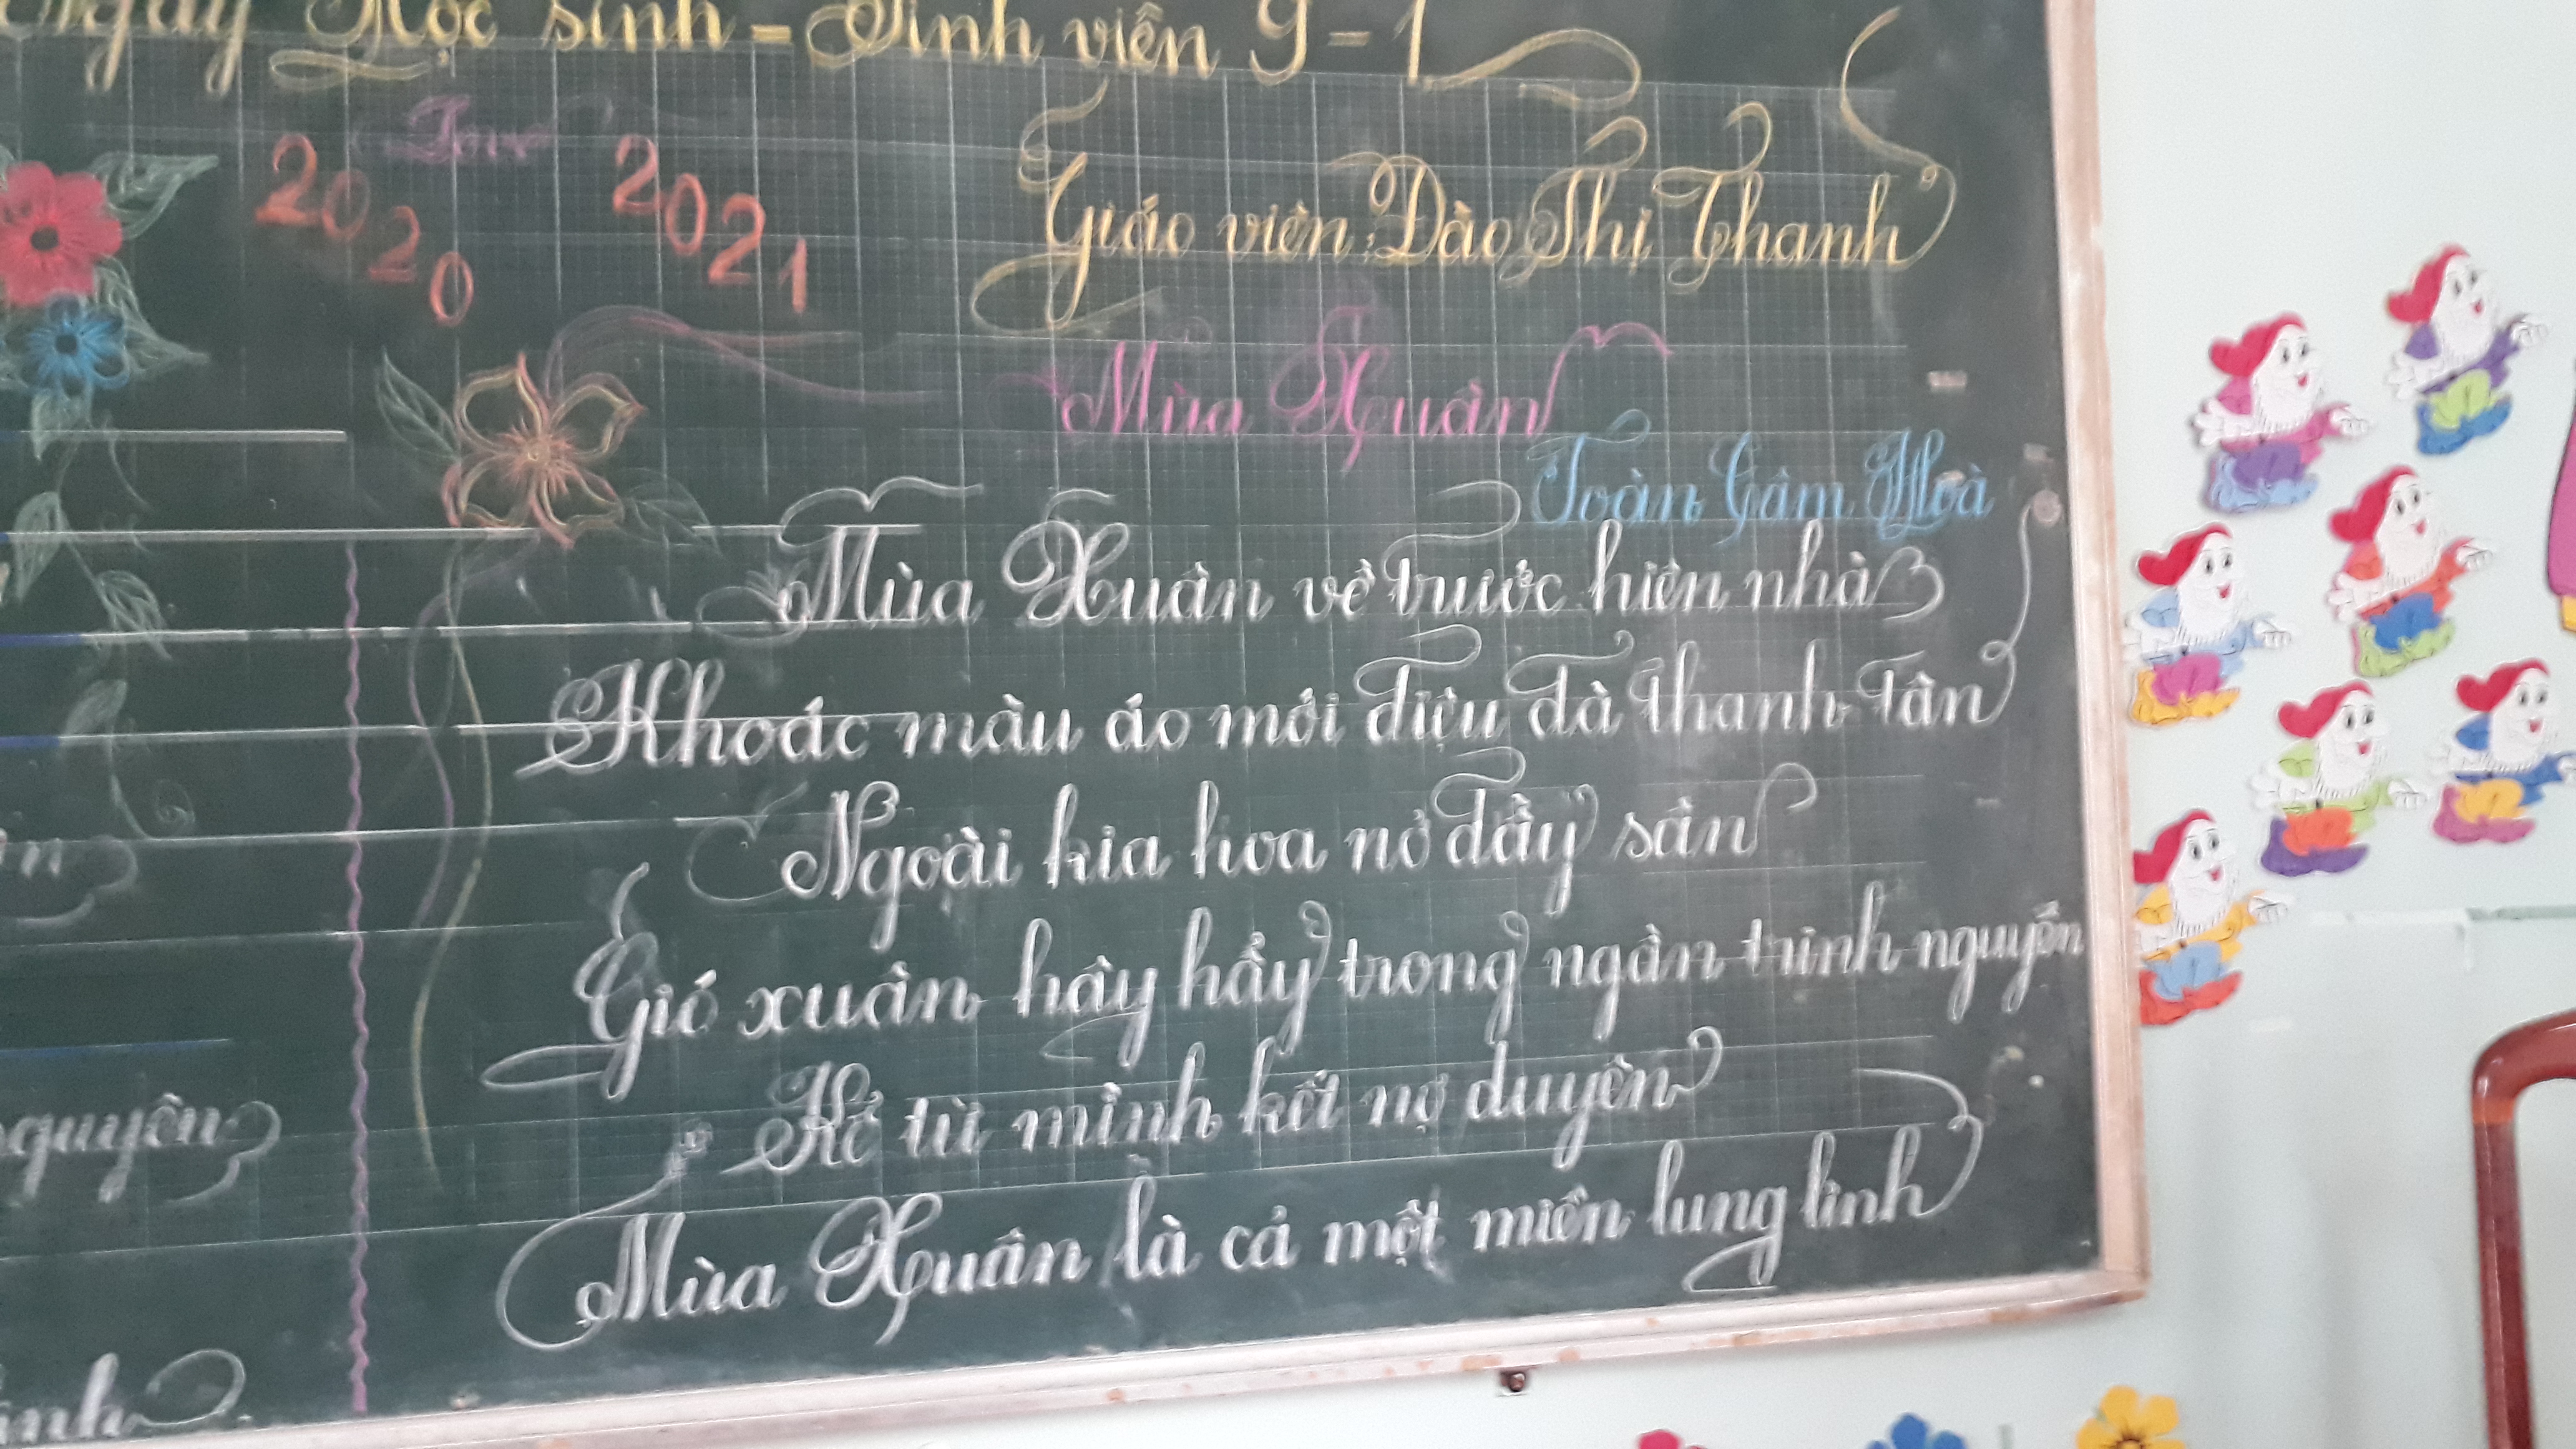 Ngày Học sinh - Sinh viên 9 - 1
2020 2021
Giáo viên: Đào Thị Thanh
Mùa Xuân
Toàn Tâm Hoà
Mùa Xuân về trước hiên nhà
Khoác màu áo mới điệu đà thanh tân
Ngoài kia hoa nở đầy sân
Gió xuân hây hẩy trong ngần trinh nguyên
Kể từ mình kết nợ duyên
Mùa Xuân là cả một miền lung linh
nguyên